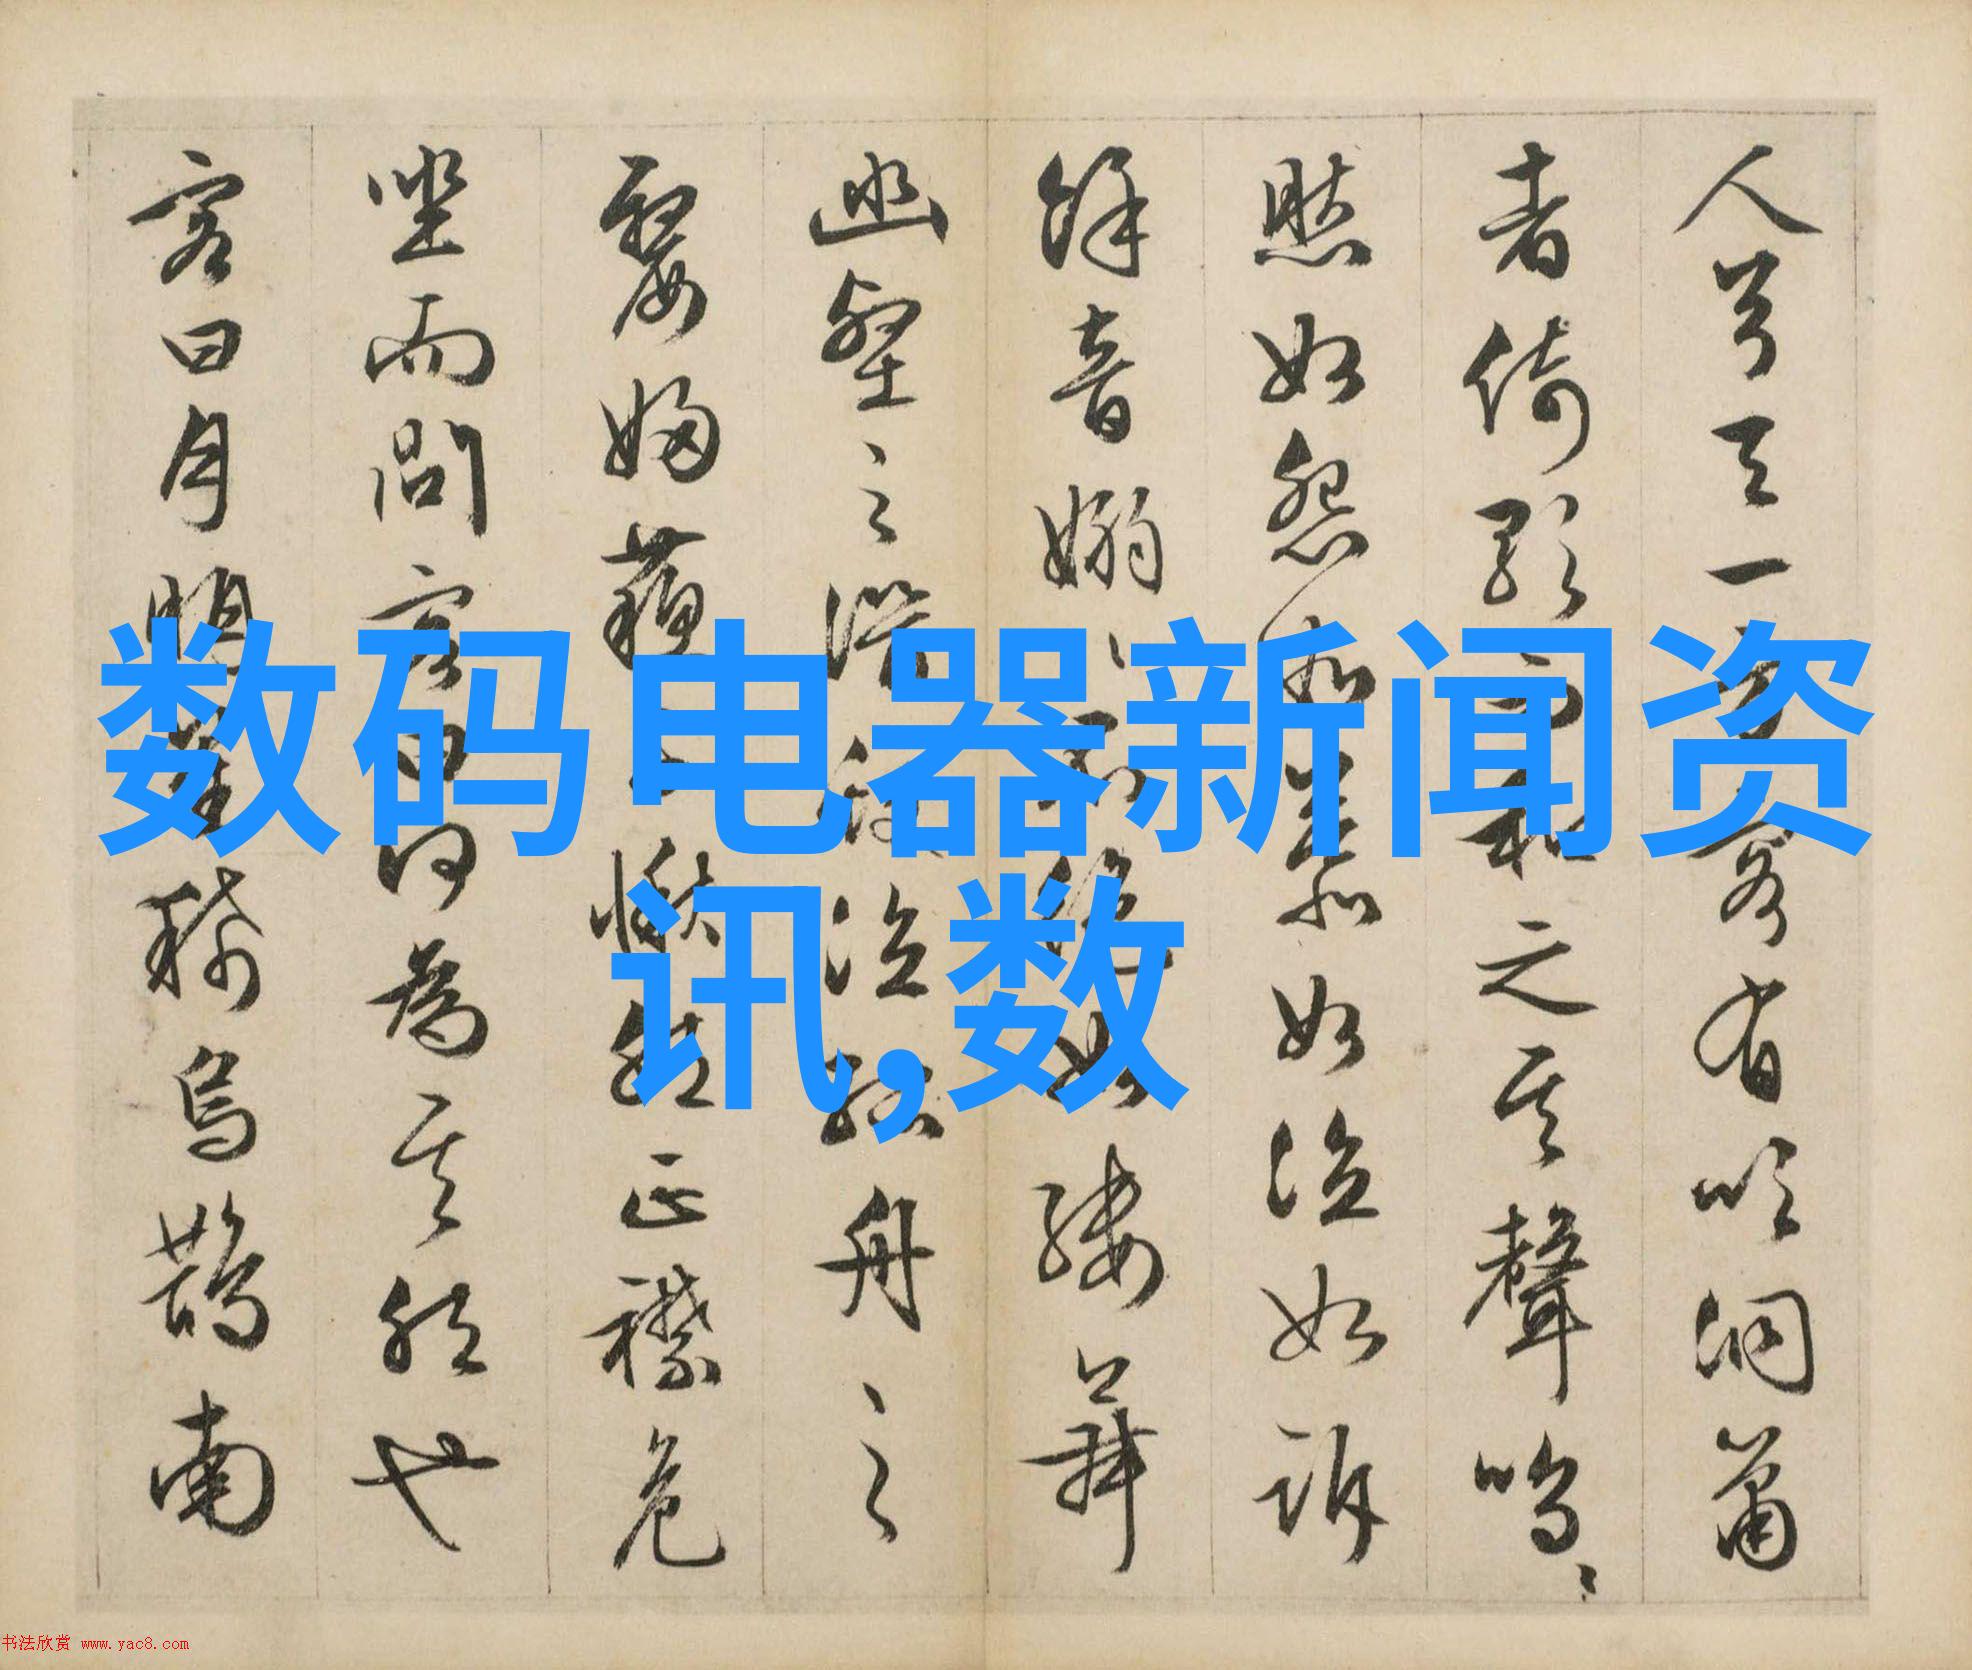 人兮天一方客有吹洞簫
者倚歌而和之其聲嗚〻
然如怨如慕如泣如訴
餘音嫋〻不絕如縷舞
幽壑之潛泣孤舟之
嫠婦蘇子愀然正襟危
坐而問客曰何為其然也
客曰月明星稀烏鵲南
数码电器新闻资
讯,数
书法欣赏 www.yac8.com